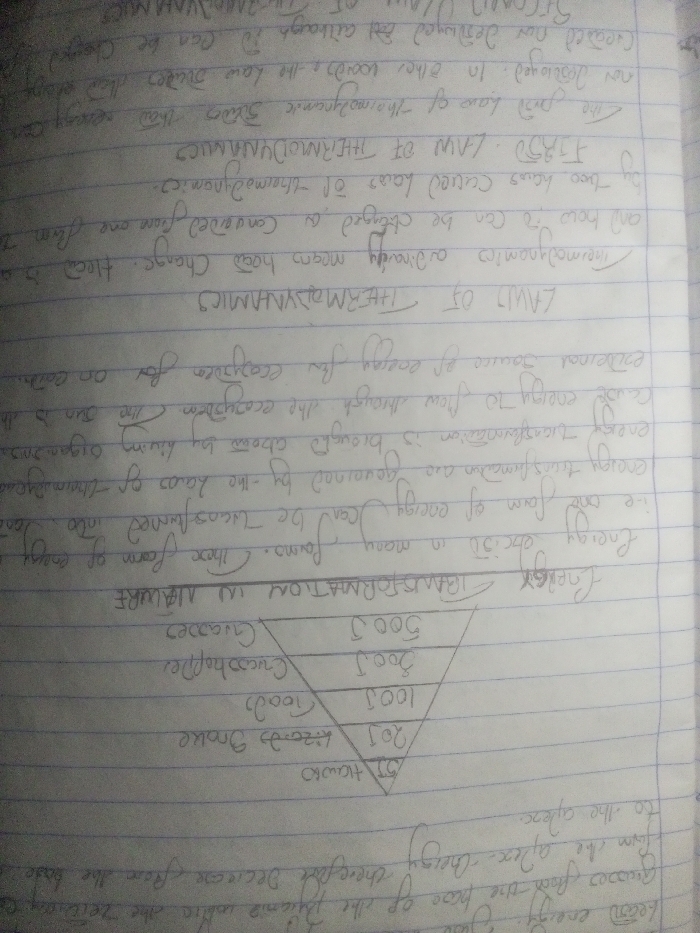 heat energy.
Grasses form the base of the pyramid while the
form the apex. Energy therefore decrease from the base
to the apex.
5J Hawks
20J Snake
100J Toads
200J Grasshopper
500J Grasses
Energy TRANSFORMATION IN NATURE
Energy exist in many forms. These form of energy
i.e one form of energy can be transformed into
energy transformation are governed by the laws of
energy transformation is brought about by living organisms
energy to flow through the ecosystem. The sun is
external source of energy for ecosystem for on earth.
LAWS OF THERMODYNAMICS
Thermodynamics ordinarily means heat change. Heat is a
and how it can be changed or converted from one form
by two laws called laws of thermodynamics.
FIRST LAW OF THERMODYNAMICS
The first law of thermodynamic states that energy can
not destroyed. In other words, the law states that energy
created nor destroyed although it can be changed
SECOND LAW OF THERMODYNAMICS